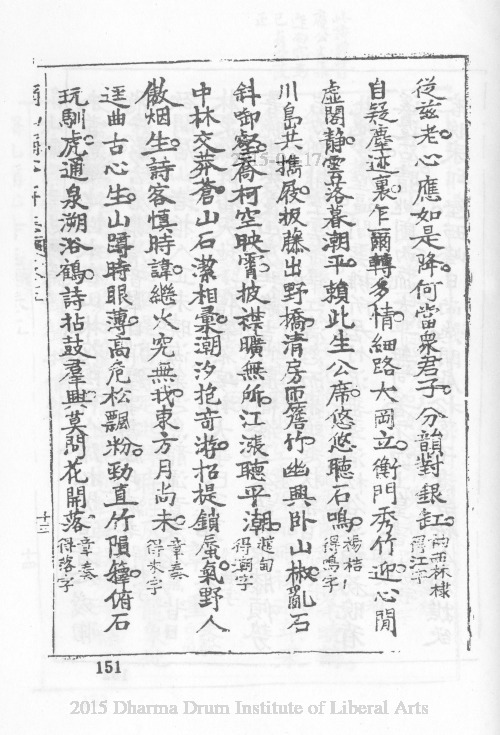 從茲老心應如是降何當眾君子分韻對銀缸 雨林棣 得江字
自疑塵迹裏乍爾轉多情細路大岡立衡門秀竹迎心閒
虛閣靜雲落暮潮平賴此生公席悠悠聽石鳴 楊桔 得鳴字
川島共攜屐扳藤出野橋清房匝簷竹幽興臥山椒亂石
斜啣壑喬柯空映霄披襟曠無所江漲聽平潮 趙甸 得潮字
中林交莽蒼山石潔相彙潮汐抱奇游招提鎖蜃氣野人
傲烟生詩客慎時諱繼火究無我東方月尚未 章奏 得未字
逕曲古心生山蹲時眼薄高危松飄粉勁直竹隕籜俯石
玩馴虎通泉溯浴鶴詩拈鼓羣興莫問花開落 章奏 得落字
十三
151
2015 Dharma Drum Institute of Liberal Arts